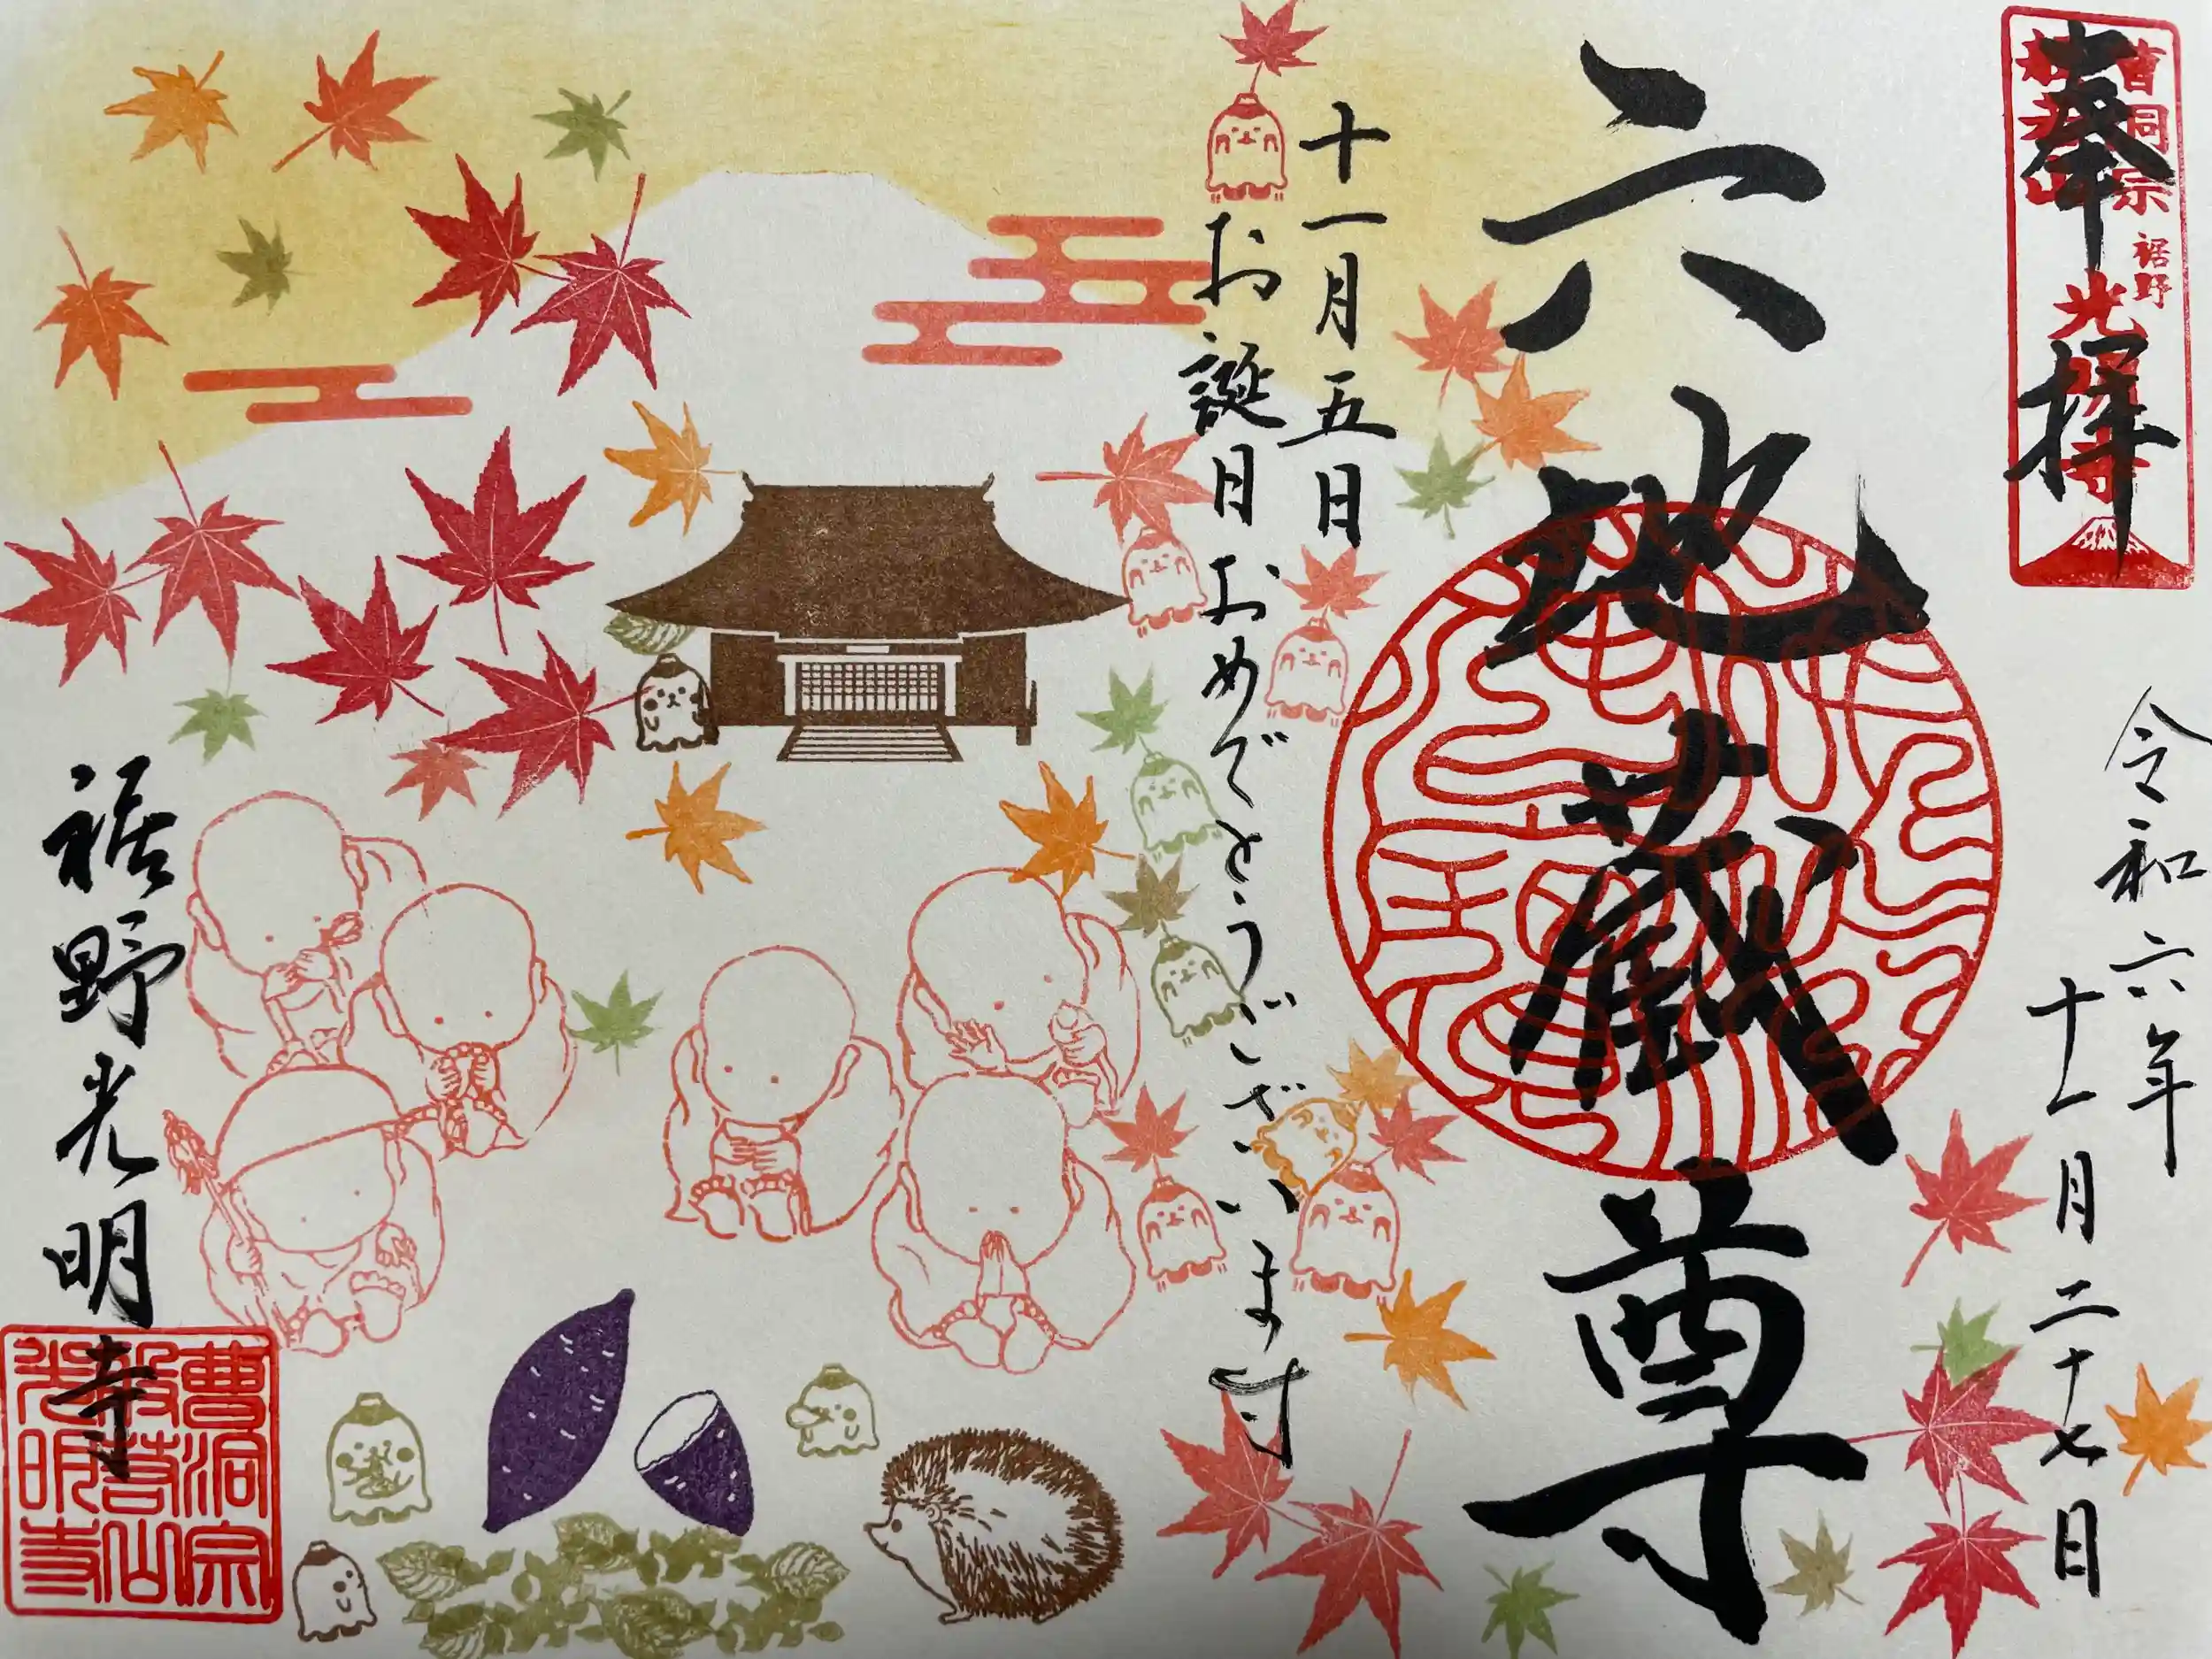 奉拝
曹洞宗
裾野
令和六年
十一月二十七日
六地蔵尊
十一月五日
お誕生日おめでとうございます
裾野光明寺
曹洞宗
般若山
光明寺